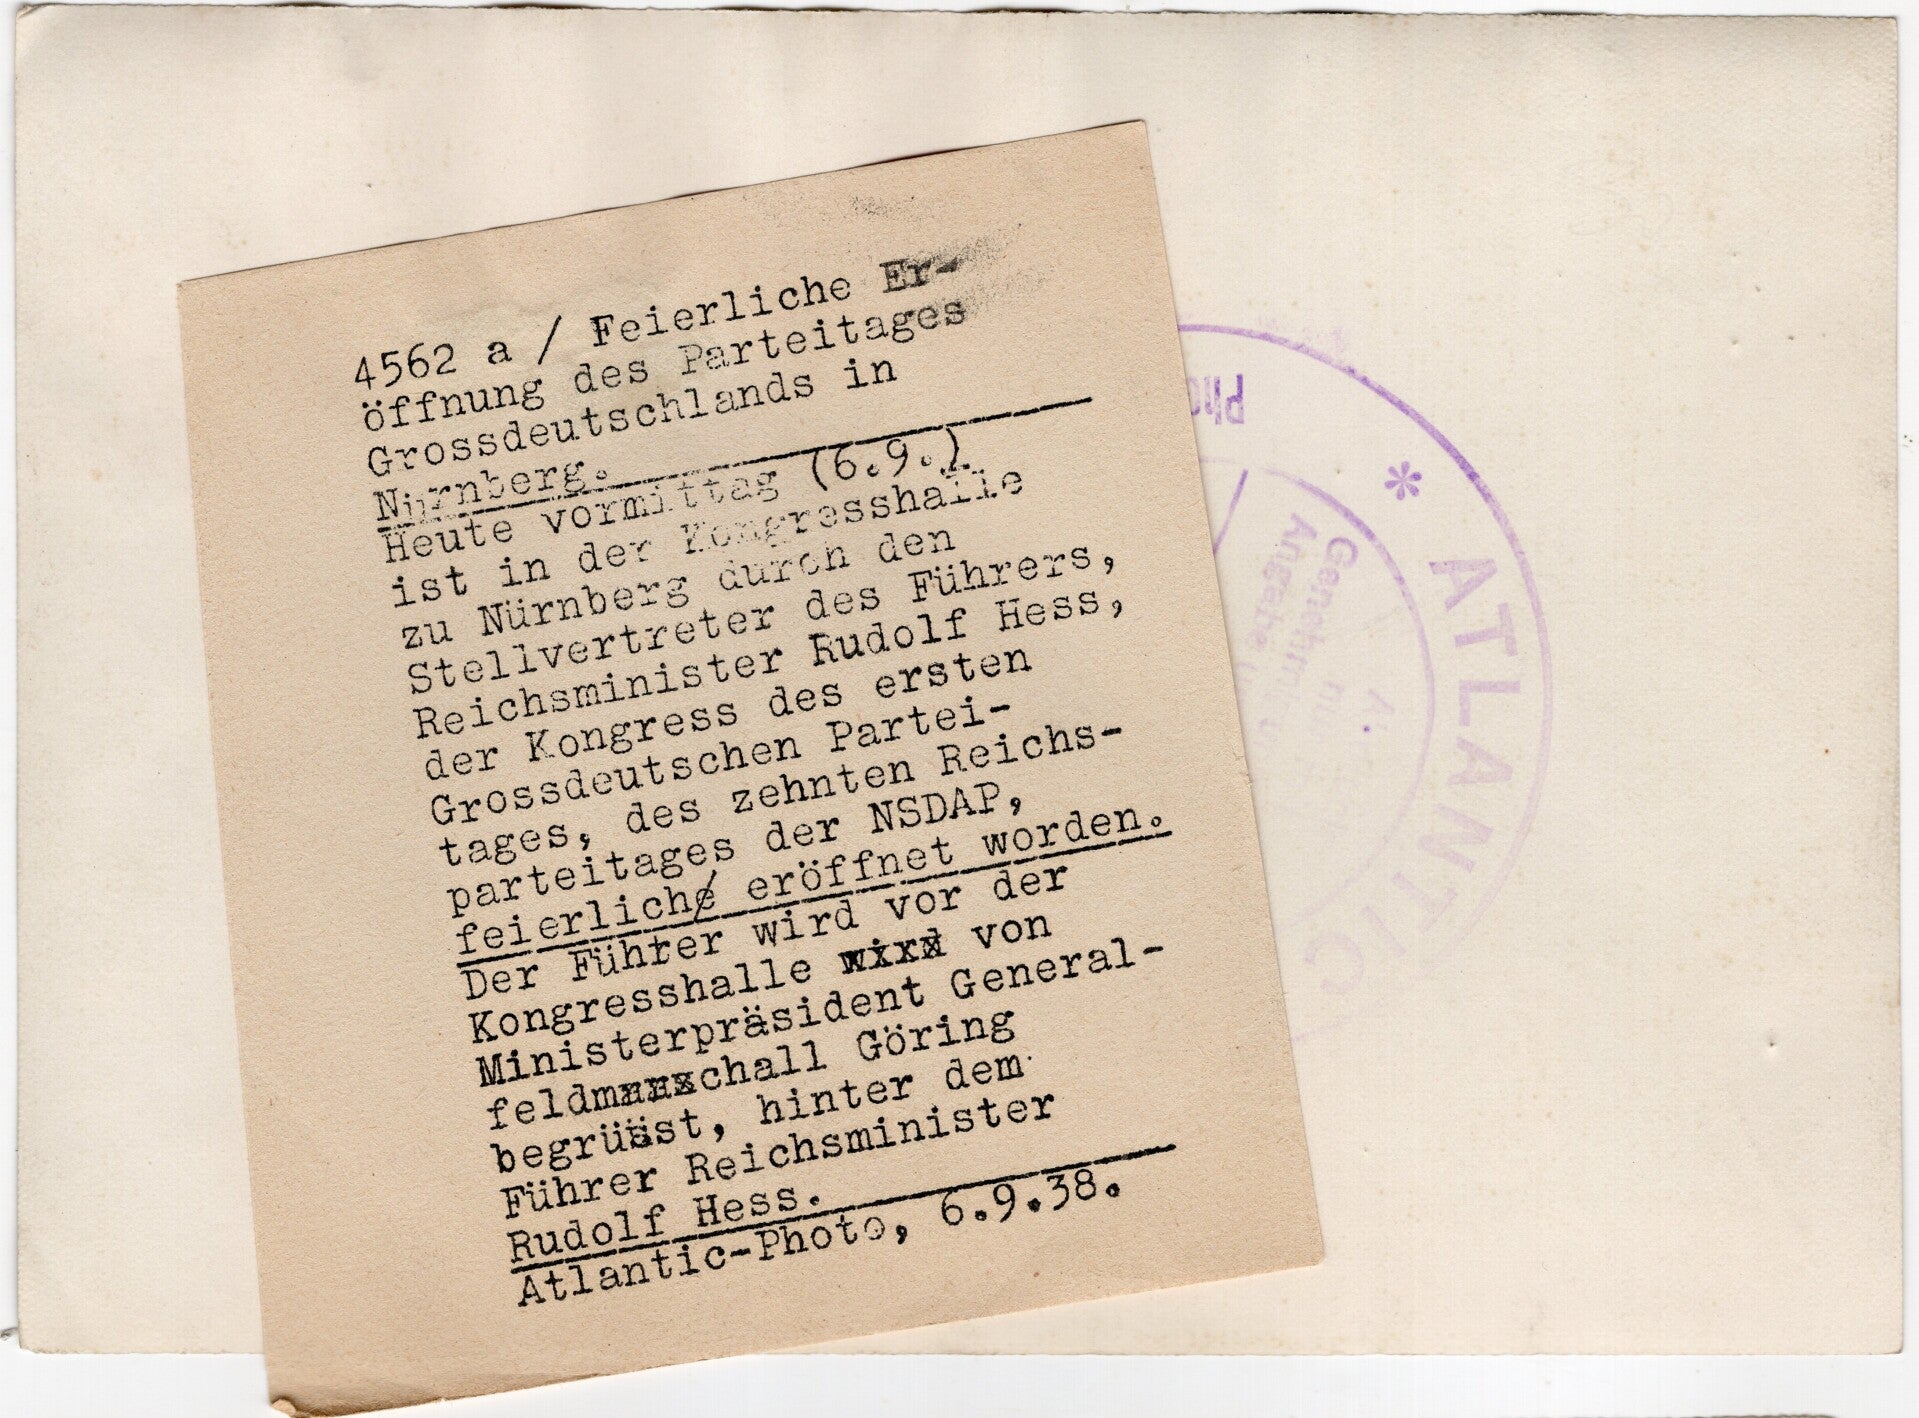 4562 a / Feierliche Er-
öffnung des Parteitages
Grossdeutschlands in
Nürnberg.
Heute vormittag (6.9.)
ist in der Kongresshalle
zu Nürnberg durch den
Stellvertreter des Führers,
Reichsminister Rudolf Hess,
der Kongress des ersten
Grossdeutschen Partei-
tages, des zehnten Reichs-
parteitages der NSDAP,
feierliche eröffnet worden.
Der Führer wird vor der
Kongresshalle wird von
Ministerpräsident General-
feldmarschall Göring
begrüsst, hinter dem
Führer Reichsminister
Rudolf Hess.
Atlantic-Photo, 6.9.38.
* ATLANTIC